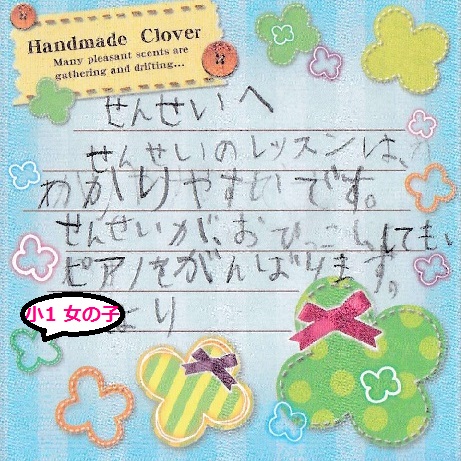 Handmade Clover
Many pleasant scents are
gathering and drifting...
せんせいへ
せんせいのレッスンは、
わかりやすいです。
せんせいが、おひっこし、しても、
ピアノをがんばります。
小1 女の子
より